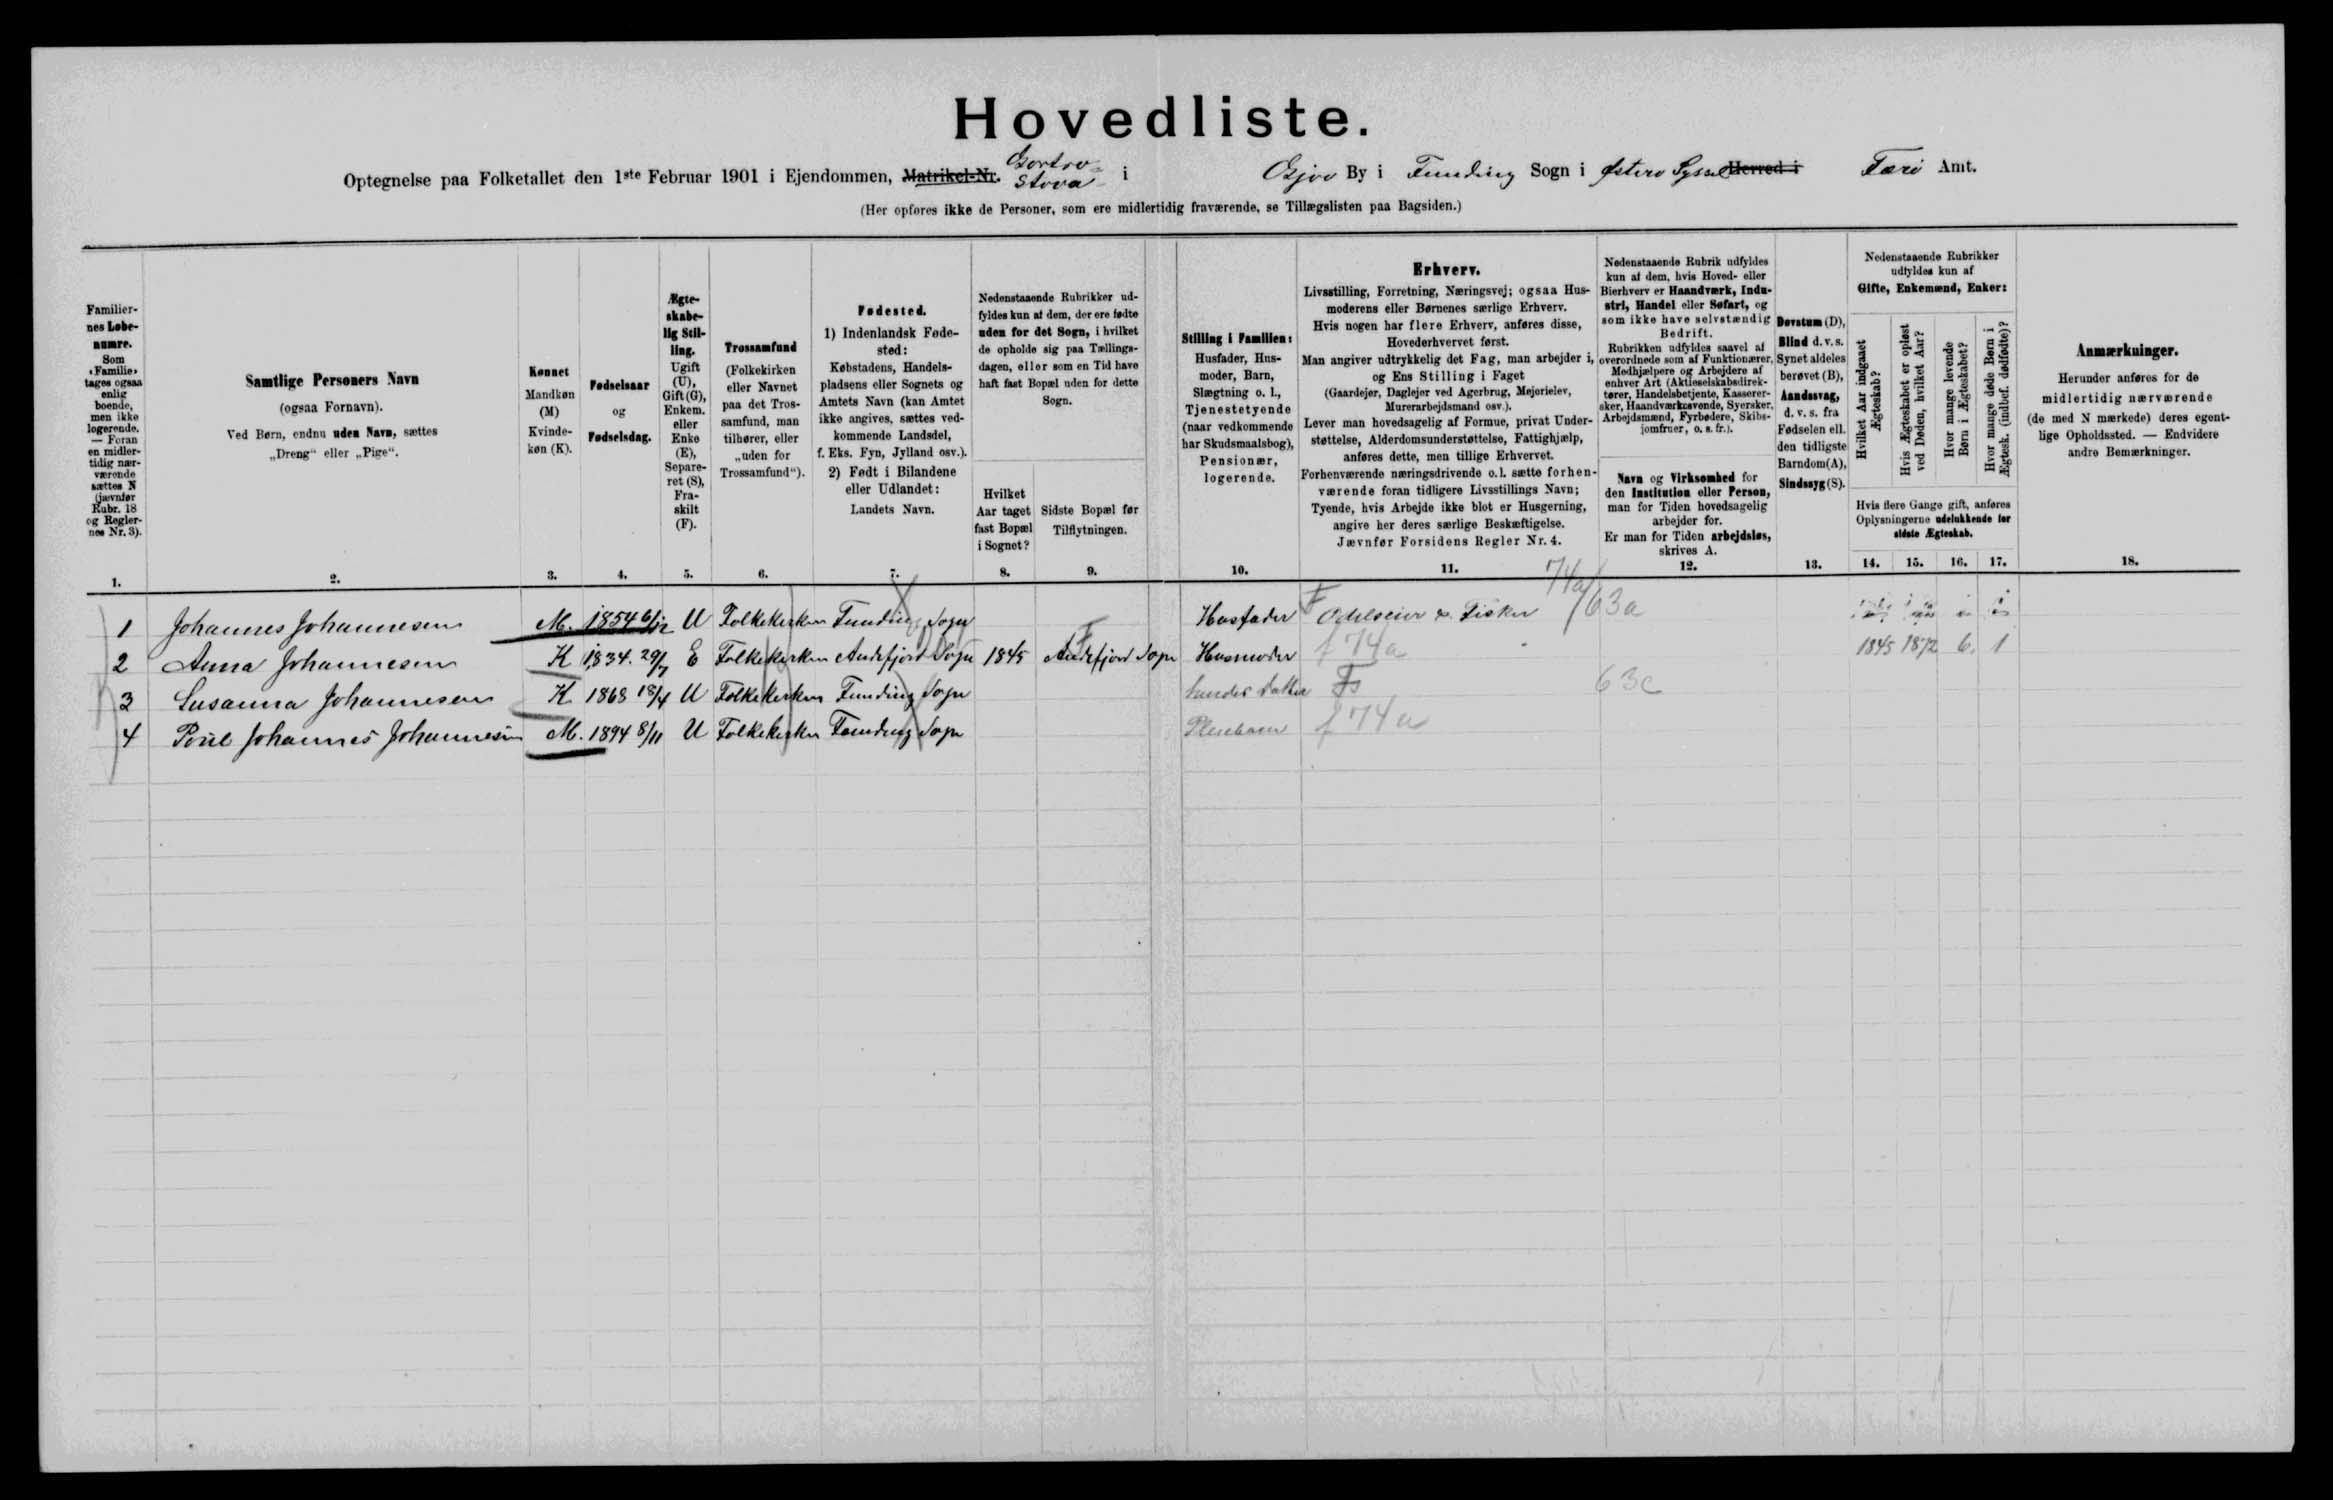 Hovedliste.
Optegnelse paa Folketallet den 1ste Februar 1901 i Ejendommen, Matrikel-Nr. Gortro- Stova i Gjov By i Funding Sogn i Østerø Syssel Herred i Færø Amt.
(Her opføres ikke de Personer, som ere midlertidig fraværende, se Tillægslisten paa Bagsiden.)
Familier-
nes Løbe-
numre.
Som
„Familie"
tages ogsaa
enlig
boende,
men ikke
logerende.
— Foran
en midler-
tidig nær-
værende
sættes N
(jævnfør
Rubr. 18
og Regler-
nes Nr. 3).
1.
Samtlige Personers Navn
(ogsaa Fornavn).
Ved Børn, endnu uden Navn, sættes
„Dreng" eller „Pige".
2.
Kønnet
Mandkøn
(M)
Kvinde-
køn (K).
3.
Fødselsaar
og
Fødselsdag.
4.
Ægte-
skabe-
lig Stil-
ling.
Ugift
(U),
Gift (G),
Enkem.
eller
Enke
(E),
Separe-
ret (S),
Fra-
skilt
(F).
5.
Trossamfund
(Folkekirken
eller Navnet
paa det Tros-
samfund, man
tilhører, eller
„uden for
Trossamfund").
6.
Fødested.
1) Indenlandsk Føde-
sted:
Købstadens, Handels-
pladsens eller Sognets og
Amtets Navn (kan Amtet
ikke angives, sættes ved-
kommende Landsdel,
f. Eks. Fyn, Jylland osv.).
2) Født i Bilandene
eller Udlandet:
Landets Navn.
7.
Nedenstaaende Rubrikker ud-
fyldes kun af dem, der ere fødte
uden for det Sogn, i hvilket
de opholde sig paa Tællings-
dagen, eller som en Tid have
haft fast Bopæl uden for dette
Sogn.
Hvilket
Aar taget
fast Bopæl
i Sognet?
8.
Sidste Bopæl før
Tilflytningen.
9.
Stilling i Familien:
Husfader, Hus-
moder, Barn,
Slægtning o. l.,
Tjenestetyende
(naar vedkommende
har Skudsmaalsbog),
Pensionær,
logerende.
10.
Erhverv.
Livsstilling, Forretning, Næringsvej; ogsaa Hus-
moderens eller Børnenes særlige Erhverv.
Hvis nogen har flere Erhverv, anføres disse,
Hovederhvervet først.
Man angiver udtrykkelig det Fag, man arbejder i,
og Ens Stilling i Faget
(Gaardejer, Daglejer ved Agerbrug, Mejerielev,
Murerarbejdsmand osv.).
Lever man hovedsagelig af Formue, privat Under-
støttelse, Alderdomsunderstøttelse, Fattighjælp,
anføres dette, men tillige Erhvervet.
Forhenværende næringsdrivende o.l. sætte forhen-
værende foran tidligere Livsstillings Navn;
Tyende, hvis Arbejde ikke blot er Husgerning,
angive her deres særlige Beskæftigelse.
Jævnfør Forsidens Regler Nr. 4.
11.
Nedenstaaende Rubrik udfyldes
kun af dem, hvis Hoved- eller
Bierhverv er Haandværk, Indu-
stri, Handel eller Søfart, og
som ikke have selvstændig
Bedrift.
Rubrikken udfyldes saavel af
overordnede som af Funktionærer,
Medhjælpere og Arbejdere af
enhver Art (Aktieselskabsdirek-
tører, Handelsbetjente, Kasserer-
sker, Haandværkssvende, Syersker,
Arbejdsmænd, Fyrbødere, Skibs-
jomfruer, o. s. fr.).
Navn og Virksomhed for
den Institution eller Person,
man for Tiden hovedsagelig
arbejder for.
Er man for Tiden arbejdsløs,
skrives A.
12.
Døvstum (D),
Blind d. v. s.
Synet aldeles
berøvet (B),
Aandssvag,
d. v. s. fra
Fødselen ell.
den tidligste
Barndom(A),
Sindssyg (S).
13.
Nedenstaaende Rubrikker
udfyldes kun af
Gifte, Enkemænd, Enker:
Hvilket Aar indgaaet
Ægteskab?
Hvis Ægteskabet er opløst
ved Døden, hvilket Aar?
Hvor mange levende
Børn i Ægteskabet?
Hvor mange døde Børn i
Ægtesk. (indbef. dødfødte)?
Hvis flere Gange gift, anføres
Oplysningerne udelukkende for
sidste Ægteskab.
14. 15. 16. 17.
Anmærkninger.
Herunder anføres for de
midlertidig nærværende
(de med N mærkede) deres egent-
lige Opholdssted. — Endvidere
andre Bemærkninger.
18.
1 Johannes Johannesen M. 1854 6/12 U Folkekirken Funding Sogn Husfader F Odelseier & Fisker 74a/63a
2 Anna Johannesen K 1834. 29/7 E Folkekirken Andefjord Sogn 1845 Andefjord Sogn Husmoder f 74a 1845 1872 6. 1
3 Susanna Johannesen K. 1868 18/4 U Folkekirken Funding Sogn Fs 63c
4 Poul Johannes Johannesen M. 1894 8/11 U Folkekirken Funding Sogn Pleiebarn f 74a